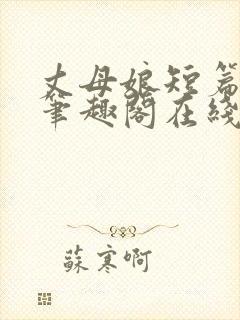 丈母娘短篇
笔趣阁在线
蘇寒啊